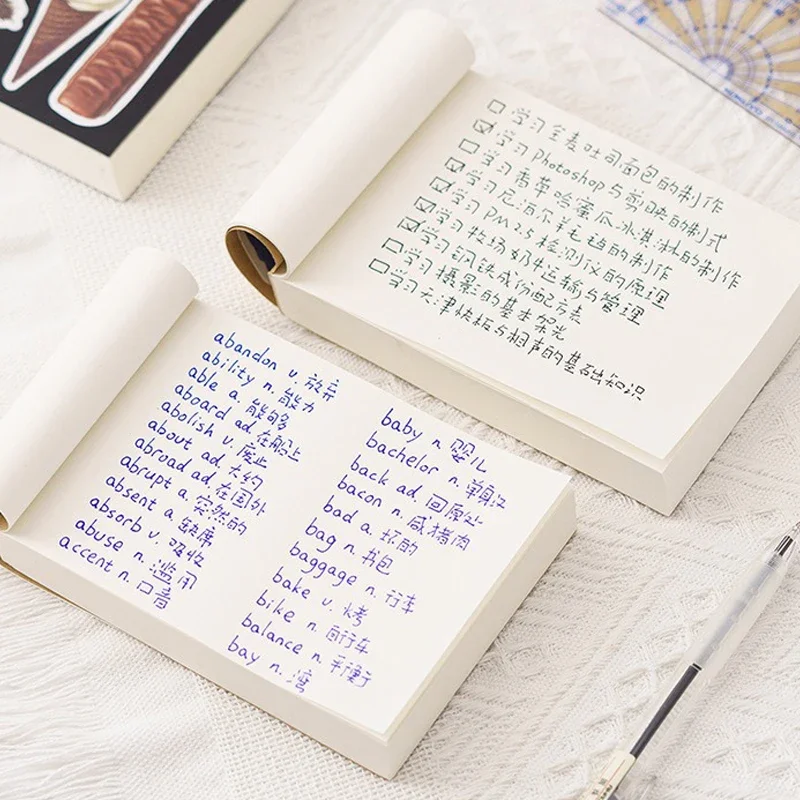 学习全麦吐司面包的制作
学习Photoshop与剪映的制式
学习香草哈蜜瓜冰淇淋的制作
学习尼泊尔羊毛毡的制作
学习PM2.5检测仪的原理
学习牧场奶牛运输与管理
学习钢铁成份配方表
学习摄影的基本架光
学习天津快板与相声的基础知识
KOKUYO
abandon v. 放弃
ability n. 能力
able a. 能够
aboard ad. 在船上
abolish v. 废止
about ad. 大约
abroad ad. 在国外
abrupt a. 突然的
absent a. 缺席
absorb v. 吸收
abuse n. 滥用
accent n. 口音
baby n. 婴儿
bachelor n. 单身汉
back ad. 回原处
bacon n. 咸猪肉
bad a. 坏的
bag n. 书包
baggage n. 行车
bake v. 烤
bike n. 自行车
balance n. 平衡
bay n. 湾